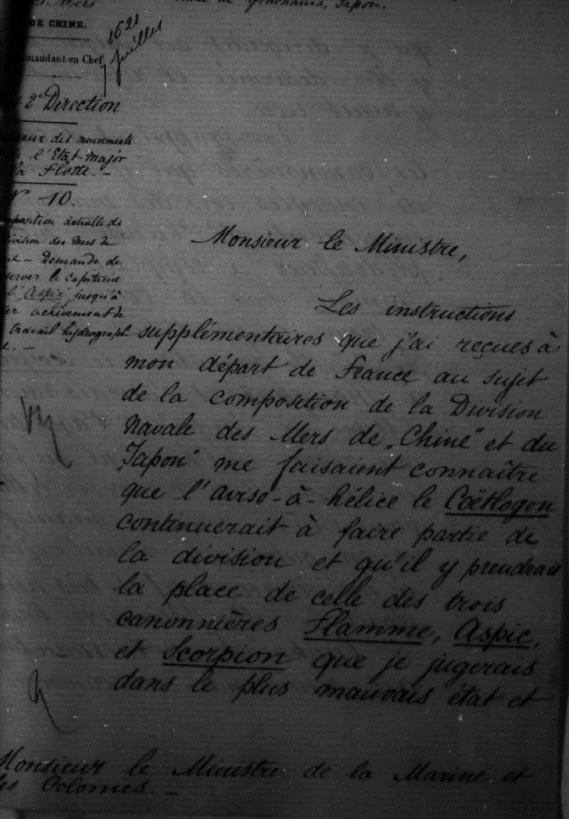 de Yokohama, Japon.
DE CHINE.
1621
Juillet
mmandant en Chef
2e Direction
des mouvements
l'Etat-Major
la Flotte. -
N° 10.
position actuelle de
ivision des Mers de
ne - Demande de
server le Capitaine
l'Aspic jusqu'à
achèvement de
travail hydrograph
Monsieur le Ministre,
Les instructions
supplémentaires que j'ai reçues à
mon départ de France au sujet
de la composition de la Division
Navale des Mers de „Chine" et du
Japon" me faisaient connaître
que l'aviso-à-hélice le Coëtlogon
continuerait à faire partie de
la division et qu'il y prendrait
la place de celle des trois
canonnières Flamme, Aspic,
et Scorpion que je jugerais
dans le plus mauvais état et
Monsieur le Ministre de la Marine et
des Colonies. -